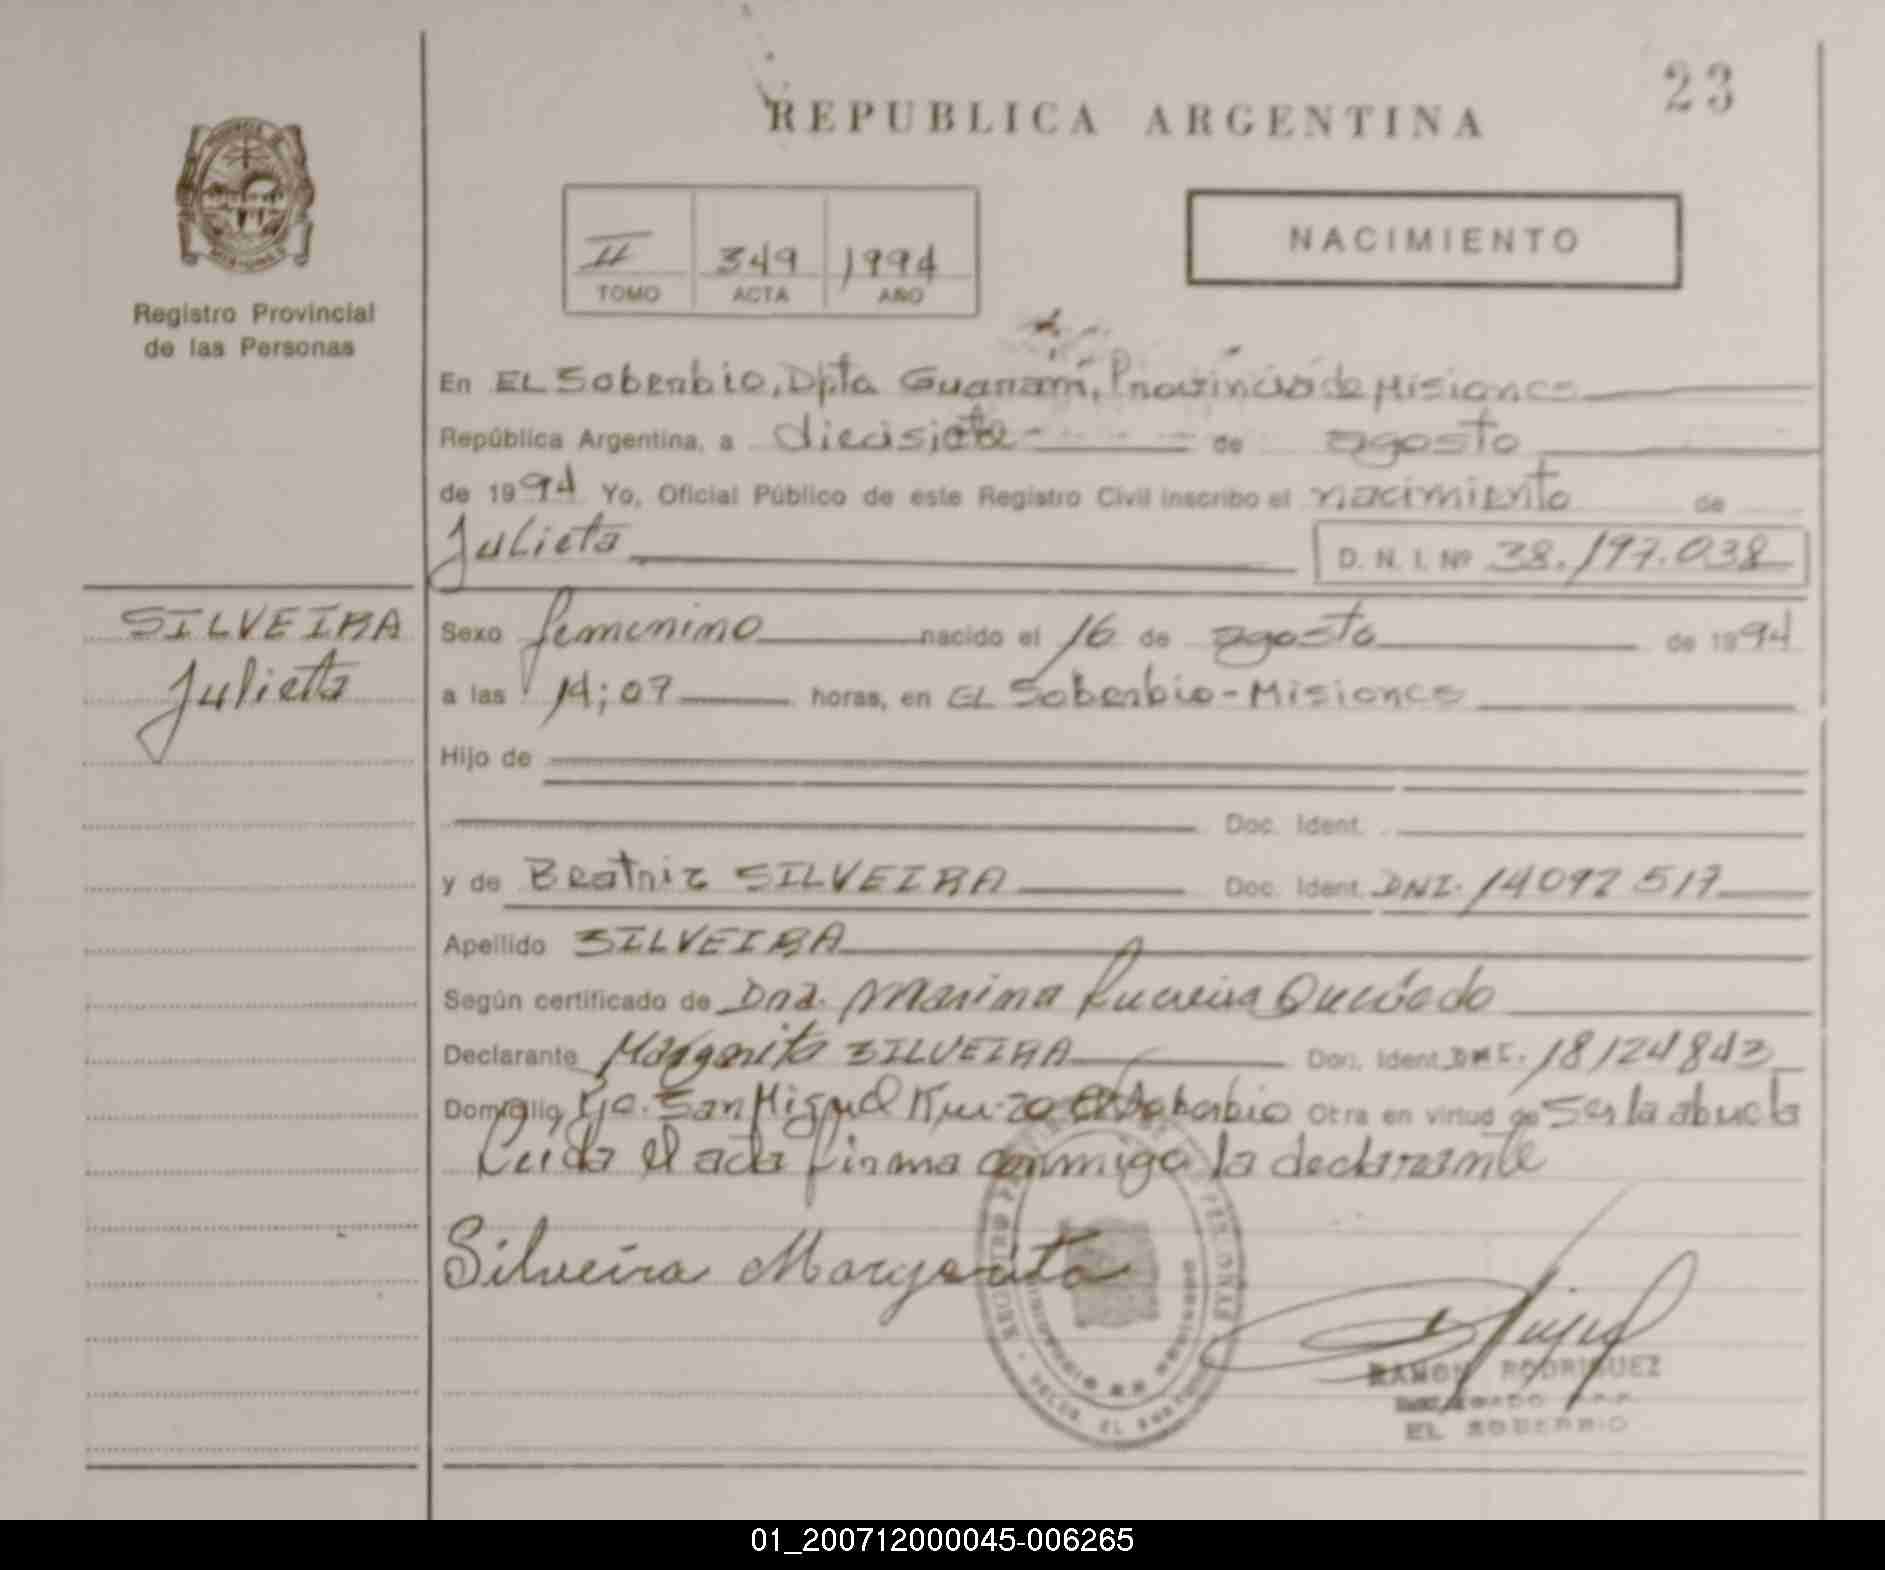 23
REPUBLICA ARGENTINA
II 349 1994
TOMO ACTA AÑO
NACIMIENTO
Registro Provincial
de las Personas
En EL Soberbio, Dpta Guaraní, Provincia de Misiones
República Argentina, a diecisiete de agosto
de 1994 Yo, Oficial Público de este Registro Civil inscribo el nacimiento de
Julieta D. N. I. Nº 38.197.038
SILVEIRA
Julieta
Sexo femenino nacido el 16 de agosto de 1994
a las 14;07 horas, en EL Soberbio-Misiones
Hijo de
Doc. Ident.
y de Beatriz SILVEIRA Doc. Ident. DNI. 14092517
Apellido SILVEIRA
Según certificado de Dña. Marina
Declarante Margarita SILVEIRA Doc. Ident. DNI. 18124843
Domicilio San Miguel Km. 20 El Soberbio Otra en virtud de Ser la abuela
Leida el acta firma conmigo la declarante
Silveira Margarita
RAMON RODRIGUEZ
EL SOBERBIO
01_200712000045-006265